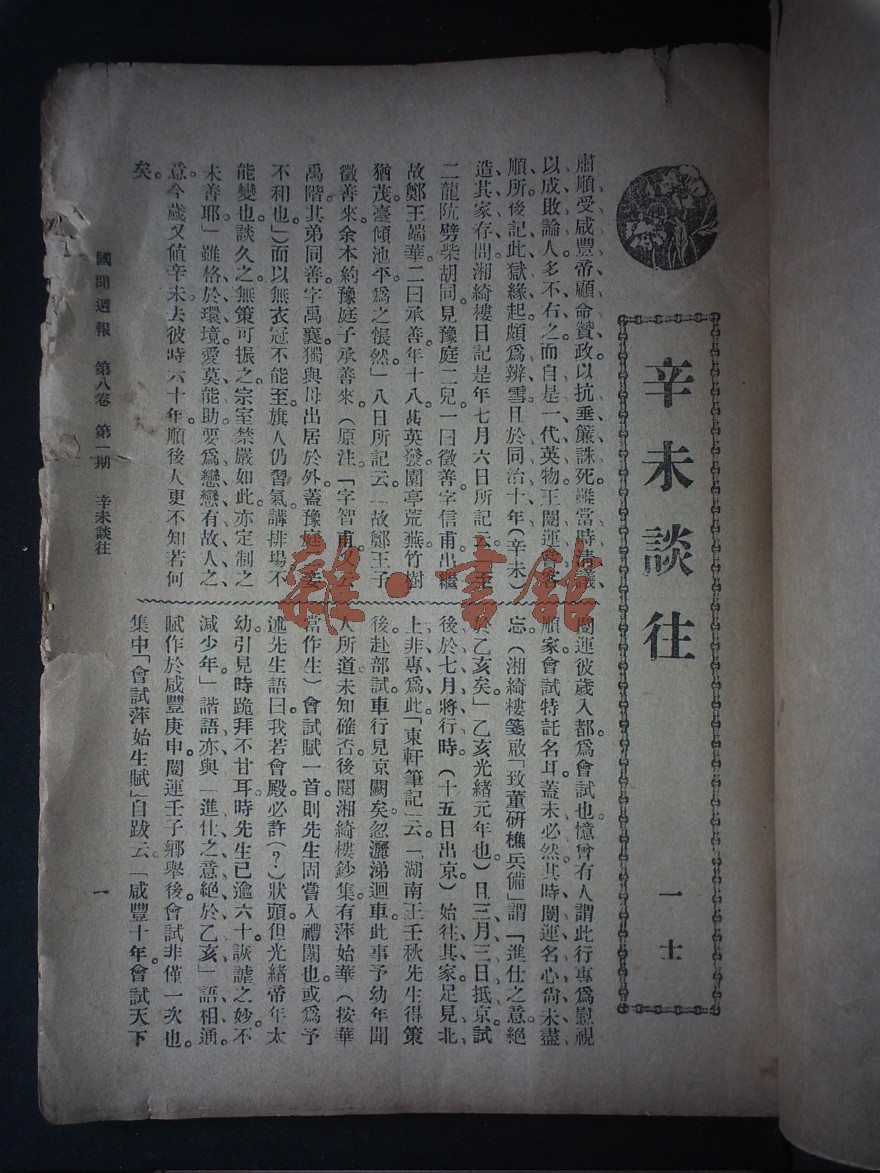 辛未談往
一士
肅順受咸豐帝顧命贊政。以抗垂簾誅死。雖當時清議
以成敗論人多不右之。而自是一代英物。王闓運曾客
順所。後記此獄緣起。頗爲辨雪。且於同治十年(辛未)
造其家存問。湘綺樓日記是年七月六日所記云。「至
二龍阬劈柴胡同見豫庭二兒。一曰徵善字信甫。出繼
故鄭王端華。二曰承善。年十八。甚英發。園亭荒蕪。竹樹
猶茂。臺傾池平。爲之悵然」八日所記云。「故鄭王子
徵善來。余本約豫庭子承善來(原注。「字智甫。又云
禹階。其弟同善字禹襄。獨與母出居於外。蓋豫庭二妾
不和也」)而以無衣冠不能至。旗人仍習氣講排場不
能變也。談久之。無策可振之。宗室禁嚴如此。亦定制之
未善耶」雖格於環境。愛莫能助。要爲戀戀有故人之
意。今歲又値辛未。去彼時六十年。順後人更不知若何
矣。
闓運彼歲入都。爲會試也。憶曾有人謂此行專爲慰視
順家。會試特託名耳。蓋未必然。其時闓運名心尙未盡
忘(湘綺樓箋啟「致董研樵兵備」謂「進仕之意絕
於乙亥矣」乙亥光緒元年也)且三月三日抵京。試
後於七月將行時(十五日出京)始往其家。足見北
上非專爲此。「東軒筆記」云。「湖南王壬秋先生得策
後赴部試。車行見京闕矣。忽灑涕迴車。此事予幼年聞
人所道。未知確否。後閱湘綺樓鈔集。有萍始華(按華
當作生)會試賦一首。則先生固嘗入禮闈也。或爲予
述先生語曰。我若會殿必許(?)狀頭。但光緒帝年太
幼。引見時跪拜不甘耳。時先生已逾六十。詼謔之妙。不
減少年」諧語亦與「進仕之意絕於乙亥」語相通。
賦作於咸豐庚申。闓運壬子鄉舉後會試非僅一次也。
集中「會試萍始生賦」自跋云。「咸豐十年。會試天下
國聞週報 第八卷 第一期 辛未談往
一
雜·書館